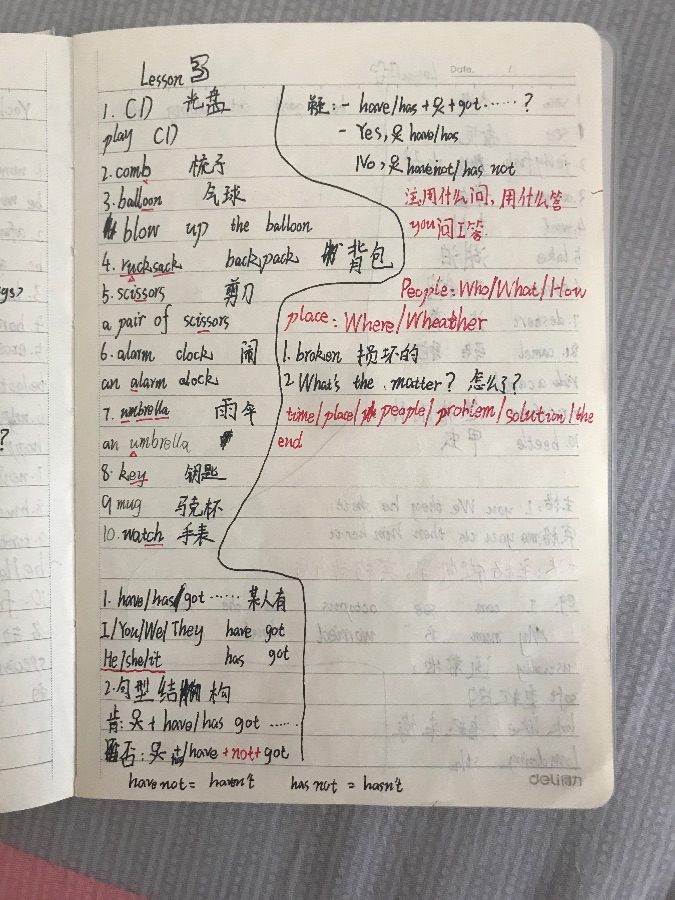 Lesson 3
Date. /
1. CD 光盘
play CD
2. comb 梳子
3. balloon 气球
blow up the balloon
4. rucksack backpack 背包
5. scissors 剪刀
a pair of scissors
6. alarm clock 闹
an alarm alock
7. umbrella 雨伞
an umbrella
8. key 钥匙
9 mug 马克杯
10. watch 手表
1. have/has/got …… 某人有
I/You/We/They have got
He/she/it has got
2. 句型结构
肯: 吴 + have/has got ……
否: 吴 + /have + not + got
have not = haven't has not = hasn't
疑: - have/has + 吴 + got ……?
- Yes, 吴 have/has
No, 吴 have not/has not
注用什么问, 用什么答
you问I答
People: Who/What/How
place: Where/Wheather
1. broken 损坏的
2 What's the matter? 怎么了?
time/place/people/problem/solution/the
end
deli得力
gs>
?